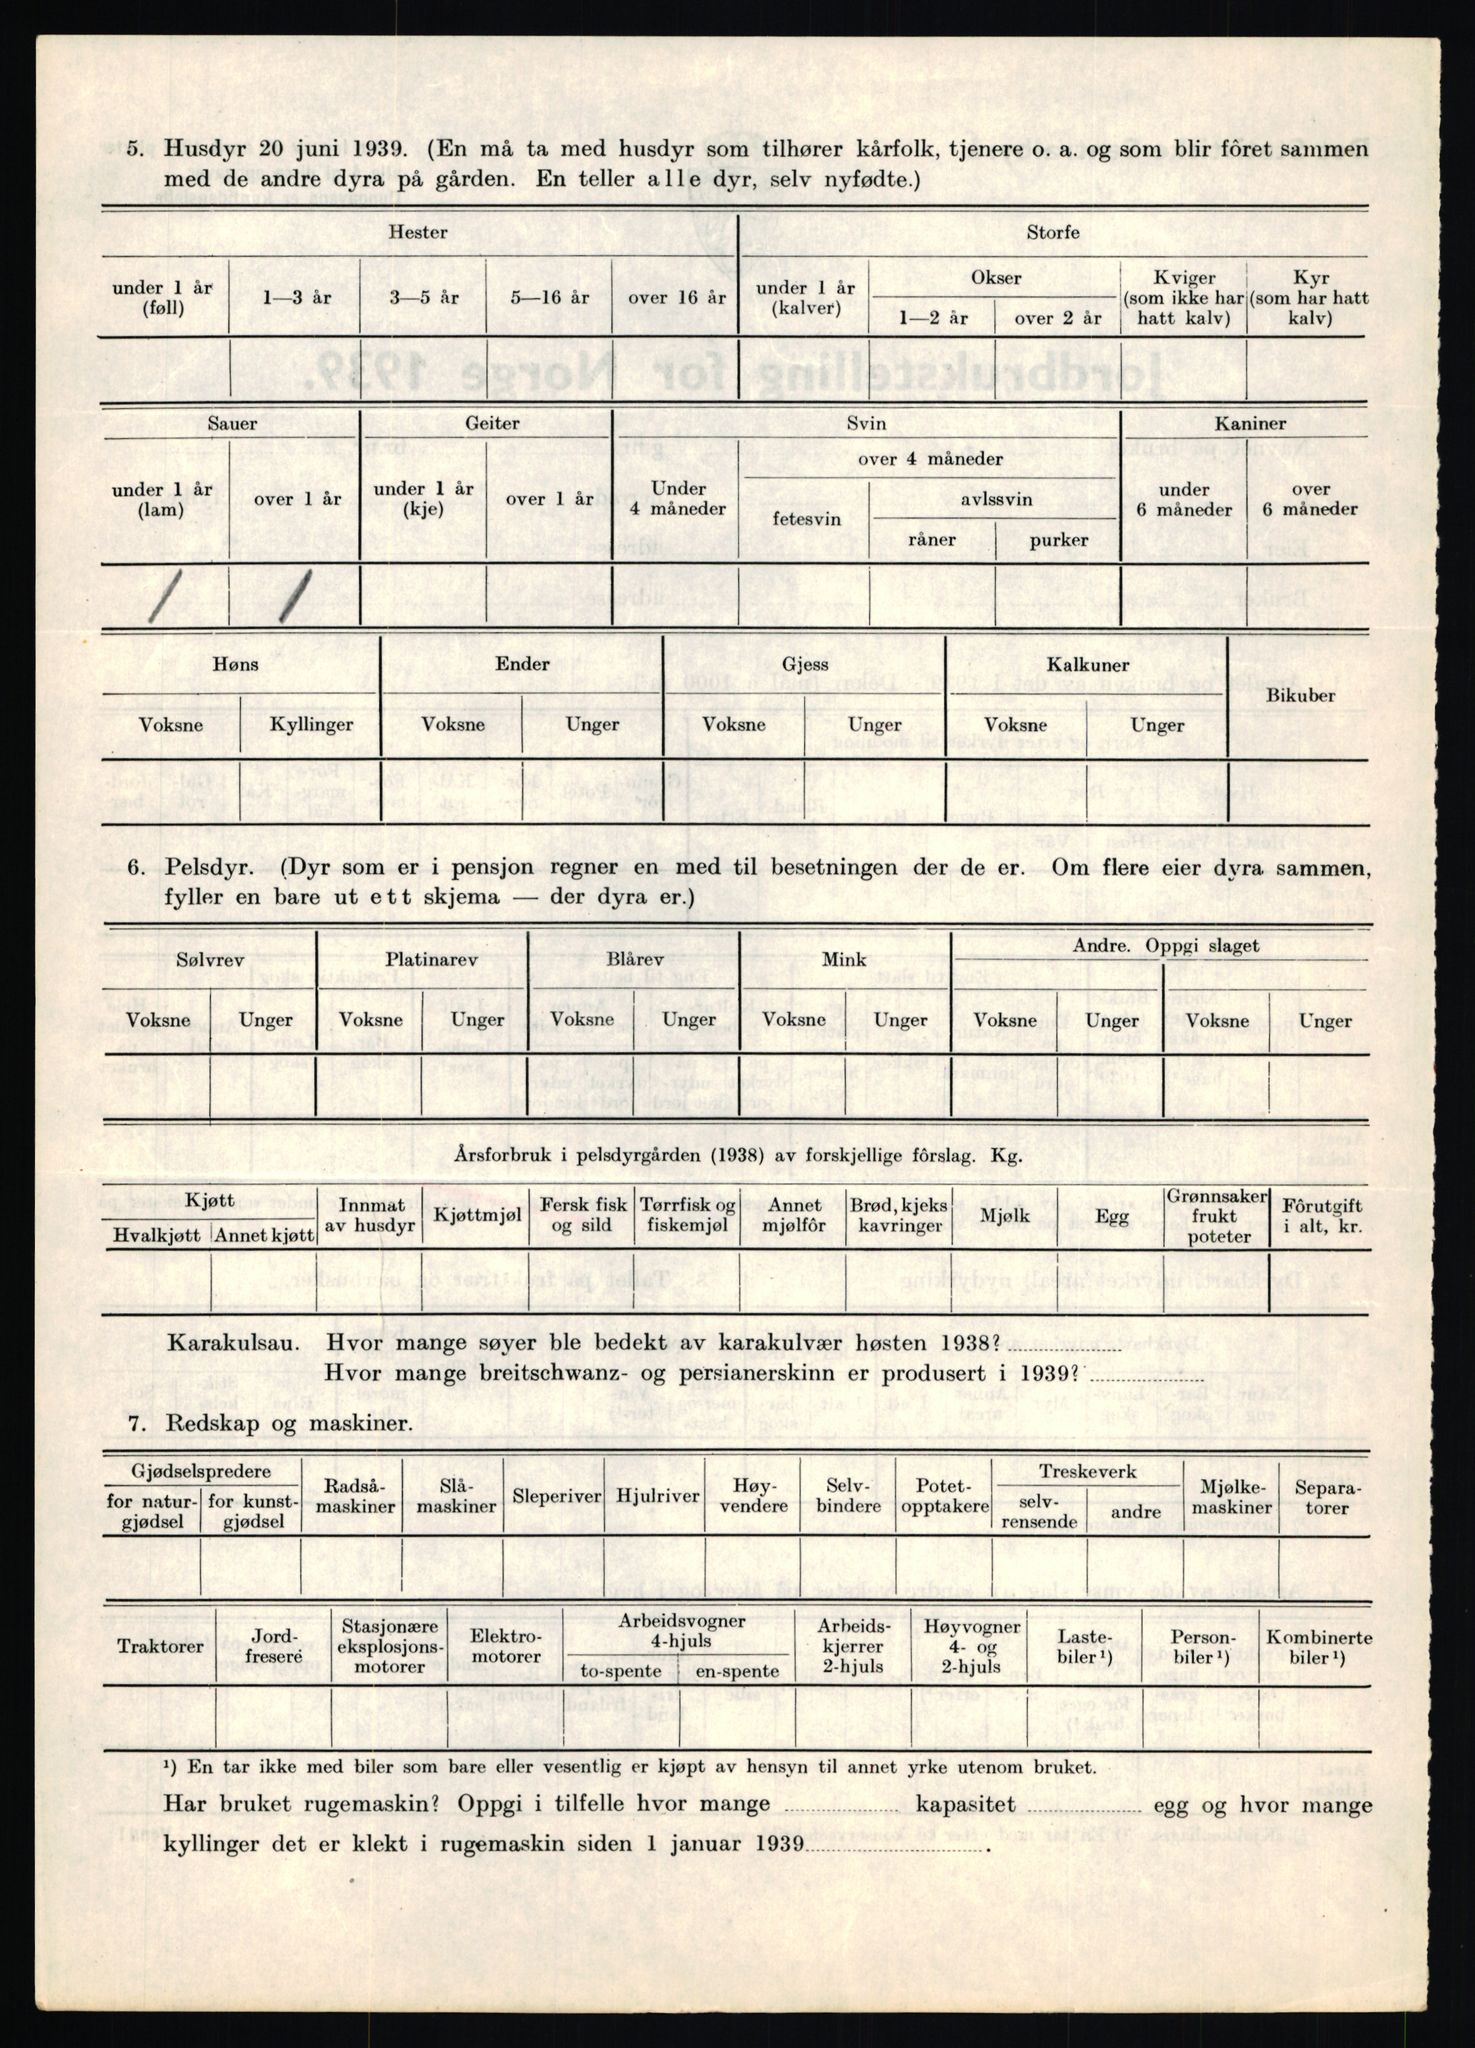 5. Husdyr 20 juni 1939. (En må ta med husdyr som tilhører kårfolk, tjenere o. a. og som blir fôret sammen
med de andre dyra på gården. En teller alle dyr, selv nyfødte.)
Hester Storfe
under 1 år (føll) 1—3 år 3—5 år 5—16 år over 16 år under 1 år (kalver) Okser 1—2 år over 2 år Kviger (som ikke har hatt kalv) Kyr (som har hatt kalv)
Sauer Geiter Svin Kaniner
under 1 år (lam) over 1 år under 1 år (kje) over 1 år Under 4 måneder over 4 måneder fetesvin avlssvin råner purker under 6 måneder over 6 måneder
1 1
Høns Ender Gjess Kalkuner Bikuber
Voksne Kyllinger Voksne Unger Voksne Unger Voksne Unger
6. Pelsdyr. (Dyr som er i pensjon regner en med til besetningen der de er. Om flere eier dyra sammen,
fyller en bare ut ett skjema — der dyra er.)
Sølvrev Platinarev Blårev Mink Andre. Oppgi slaget
Voksne Unger Voksne Unger Voksne Unger Voksne Unger Voksne Unger Voksne Unger
Årsforbruk i pelsdyrgården (1938) av forskjellige fôrslag. Kg.
Kjøtt Hvalkjøtt Annet kjøtt Innmat av husdyr Kjøttmjøl Fersk fisk og sild Tørrfisk og fiskemjøl Annet mjølfôr Brød, kjeks kavringer Mjølk Egg Grønnsaker frukt poteter Fôrutgift i alt, kr.
Karakulsau. Hvor mange søyer ble bedekt av karakulvær høsten 1938?
Hvor mange breitschwanz- og persianerskinn er produsert i 1939?
7. Redskap og maskiner.
Gjødselspredere for natur-gjødsel for kunst-gjødsel Radså-maskiner Slå-maskiner Sleperiver Hjulriver Høy-vendere Selv-bindere Potet-opptakere Treskeverk selv-rensende andre Mjølke-maskiner Separa-torer
Traktorer Jord-fresere Stasjonære eksplosjons-motorer Elektro-motorer Arbeidsvogner 4-hjuls to-spente en-spente Arbeids-kjerrer 2-hjuls Høyvogner 4- og 2-hjuls Laste-biler ¹) Person-biler ¹) Kombinerte biler ¹)
¹) En tar ikke med biler som bare eller vesentlig er kjøpt av hensyn til annet yrke utenom bruket.
Har bruket rugemaskin? Oppgi i tilfelle hvor mange kapasitet egg og hvor mange
kyllinger det er klekt i rugemaskin siden 1 januar 1939 .